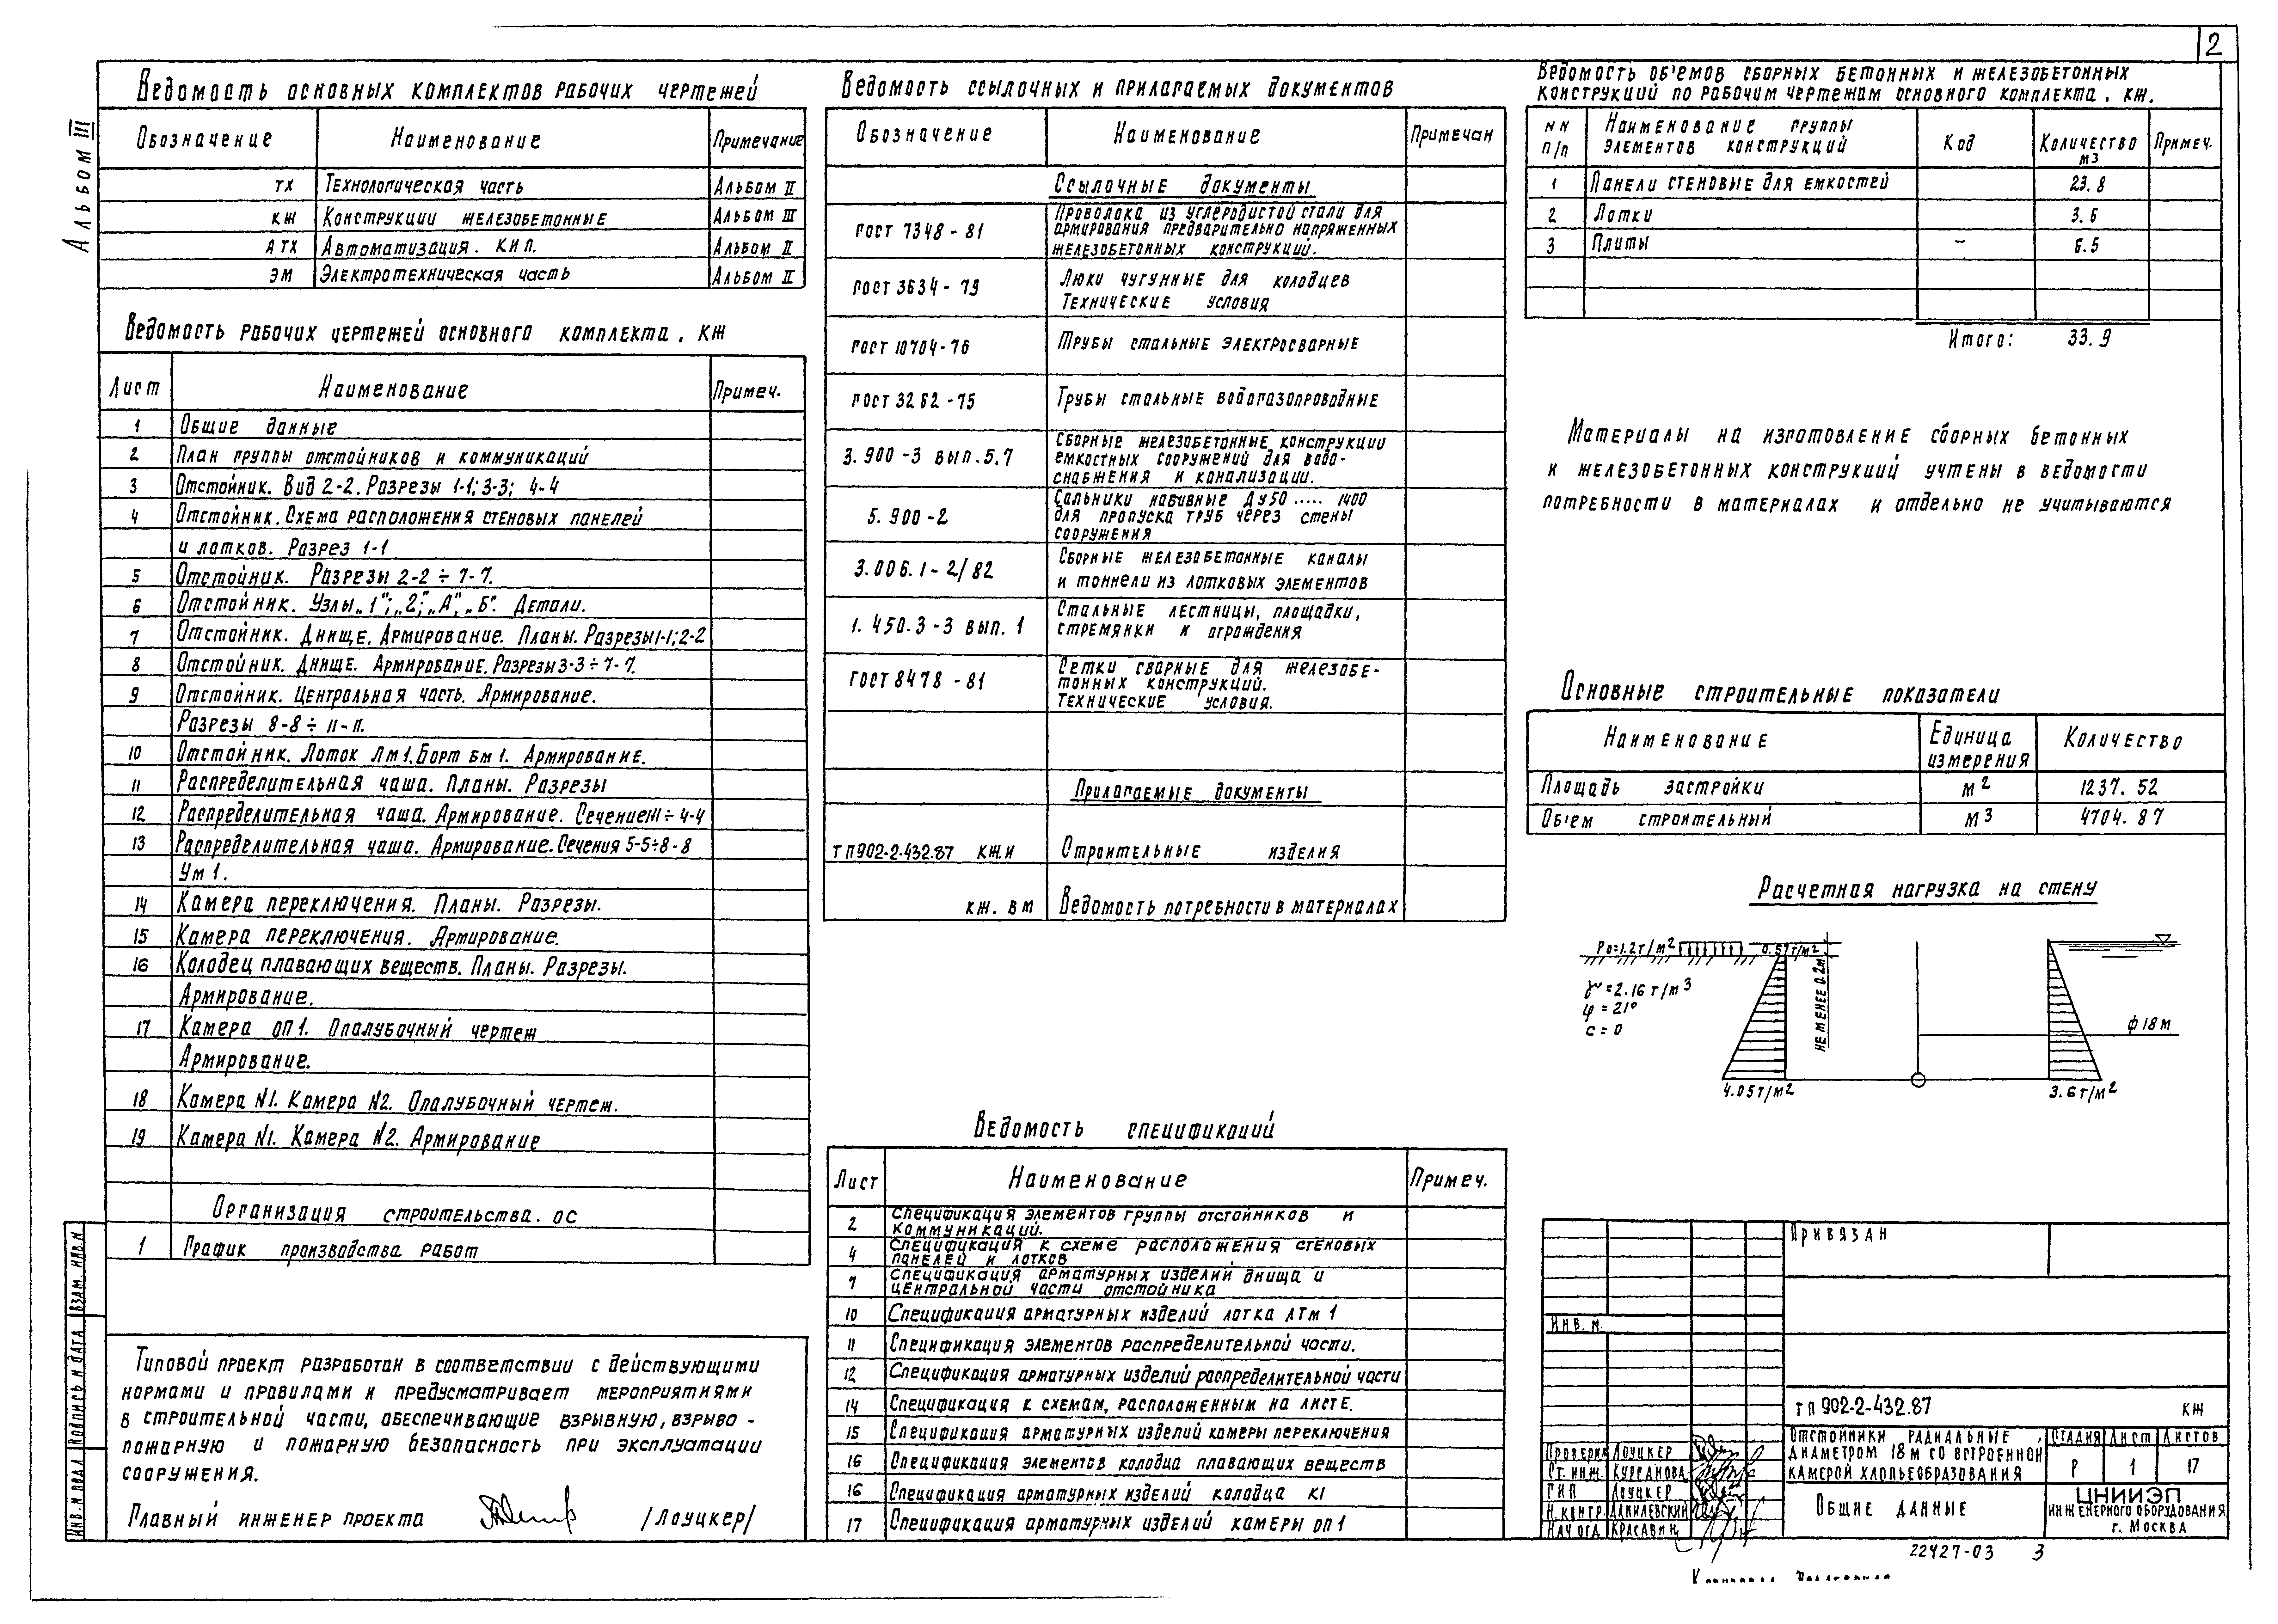 2
Альбом III
Ведомость основных комплектов рабочих чертежей
Обозначение Наименование Примечание
ТХ Технологическая часть Альбом II
КЖ Конструкции железобетонные Альбом III
АТХ Автоматизация. КИП. Альбом II
ЭМ Электротехническая часть Альбом II
Ведомость рабочих чертежей основного комплекта, КЖ
Лист Наименование Примеч.
1 Общие данные
2 План группы отстойников и коммуникаций
3 Отстойник. Вид 2-2. Разрезы 1-1; 3-3; 4-4
4 Отстойник. Схема расположения стеновых панелей
и лотков. Разрез 1-1
5 Отстойник. Разрезы 2-2 ÷ 7-7.
6 Отстойник. Узлы „1"; „2"; „А", „Б". Детали.
7 Отстойник. Днище. Армирование. Планы. Разрезы 1-1; 2-2
8 Отстойник. Днище. Армирование. Разрезы 3-3 ÷ 7-7.
9 Отстойник. Центральная часть. Армирование.
Разрезы 8-8 ÷ 11-11.
10 Отстойник. Лоток Лм1. Борт Бм1. Армирование.
11 Распределительная чаша. Планы. Разрезы
12 Распределительная чаша. Армирование. Сечение 1-1 ÷ 4-4
13 Распределительная чаша. Армирование. Сечения 5-5÷8-8
Ум 1.
14 Камера переключения. Планы. Разрезы.
15 Камера переключения. Армирование.
16 Колодец плавающих веществ. Планы. Разрезы.
Армирование.
17 Камера ОП1. Опалубочный чертеж
Армирование.
18 Камера N1. Камера N2. Опалубочный чертеж.
19 Камера N1. Камера N2. Армирование
Организация строительства. ОС
1 График производства работ
Типовой проект разработан в соответствии с действующими
нормами и правилами и предусматривает мероприятиями
в строительной части, обеспечивающие взрывную, взрыво-
пожарную и пожарную безопасность при эксплуатации
сооружения.
Главный инженер проекта /Лоуцкер/
Взам. инв. N
Подпись и дата
Инв. N подл
Ведомость ссылочных и прилагаемых документов
Обозначение Наименование Примечан
Ссылочные документы
ГОСТ 7348-81 Проволока из углеродистой стали для
армирования предварительно напряженных
железобетонных конструкций.
ГОСТ 3634-79 Люки чугунные для колодцев
Технические условия
ГОСТ 10704-76 Трубы стальные электросварные
ГОСТ 3262-75 Трубы стальные водогазопроводные
3.900-3 вып. 5,7 Сборные железобетонные конструкции
емкостных сооружений для водо-
снабжения и канализации.
5.900-2 Сальники набивные Ду50 ..... 1400
для пропуска труб через стены
сооружения
3.006.1-2/82 Сборные железобетонные каналы
и тоннели из лотковых элементов
1.450.3-3 вып. 1 Стальные лестницы, площадки,
стремянки и ограждения
ГОСТ 8478-81 Сетки сварные для железобе-
тонных конструкций.
Технические условия.
Прилагаемые документы
ТП902-2-432.87 КЖ.И Строительные изделия
КЖ.ВМ Ведомость потребности в материалах
Ведомость спецификаций
Лист Наименование Примеч.
2 Спецификация элементов группы отстойников и
коммуникаций.
4 Спецификация к схеме расположения стеновых
панелей и лотков
7 Спецификация арматурных изделий днища и
центральной части отстойника
10 Спецификация арматурных изделий лотка ЛТм 1
11 Спецификация элементов распределительной части.
12 Спецификация арматурных изделий распределительной части
14 Спецификация к схемам, расположенным на листе.
15 Спецификация арматурных изделий камеры переключения
16 Спецификация элементов колодца плавающих веществ
16 Спецификация арматурных изделий колодца К1
17 Спецификация арматурных изделий камеры ОП1
Ведомость объемов сборных бетонных и железобетонных
конструкций по рабочим чертежам основного комплекта, КЖ.
NN п/п Наименование группы элементов конструкций Код Количество м3 Примеч.
1 Панели стеновые для емкостей 23.8
2 Лотки 3.6
3 Плиты – 6.5
Итого: 33.9
Материалы на изготовление сборных бетонных
и железобетонных конструкций учтены в ведомости
потребности в материалах и отдельно не учитываются
Основные строительные показатели
Наименование Единица измерения Количество
Площадь застройки м2 1237.52
Объем строительный м3 4704.87
Расчетная нагрузка на стену
Ро=1.2т/м2 0.57т/м2
γ=2.16 т/м3
φ=21°
с=0
не менее 0.2м
ф18м
4.05т/м2 3.6т/м2
Привязан
Инв. N.
ТП 902-2-432.87 КЖ
Проверил Лоуцкер
Ст. инж. Курганова
ГИП Лоуцкер
Н. контр. Данилевский
Нач. отд. Красавин
Отстойники радиальные,
диаметром 18м со встроенной
камерой хлопьеобразования
Стадия Лист Листов
Р 1 17
Общие данные
ЦНИИЭП
инженерного оборудования
г. Москва
22427-03 3